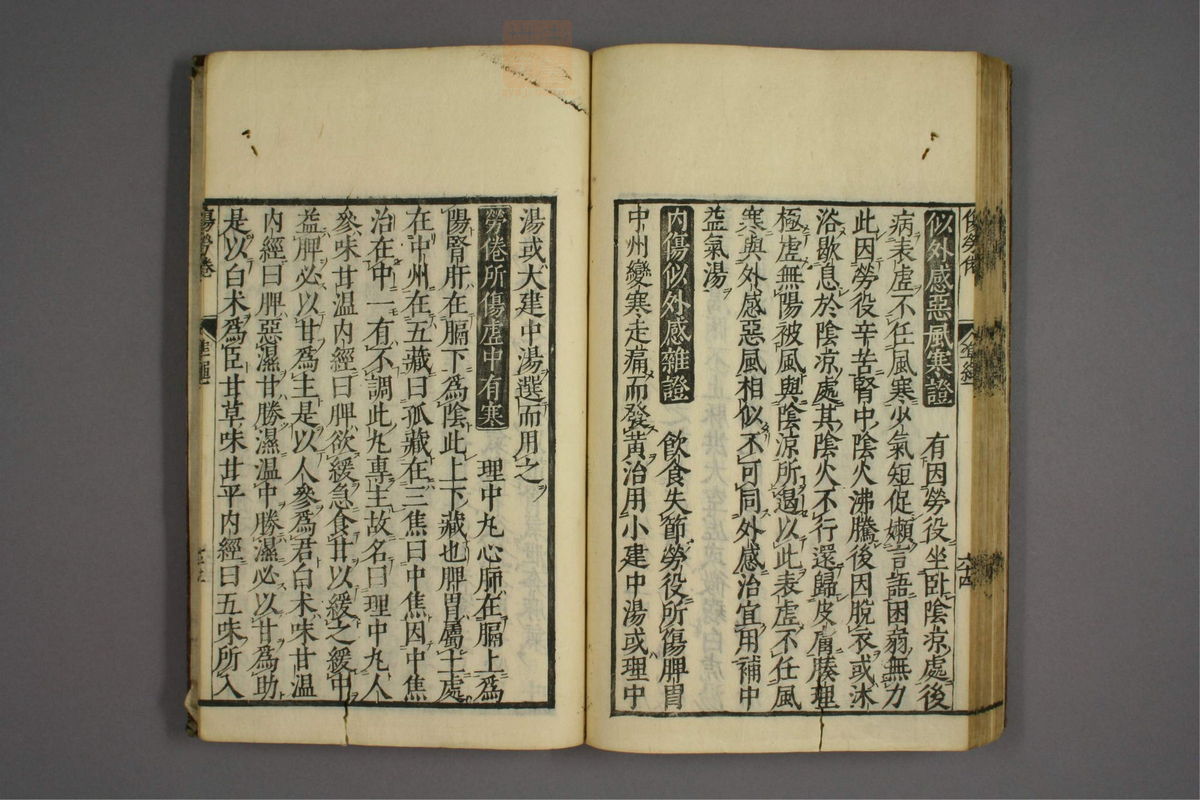 似外感惡風寒證　有因勞役坐卧陰涼處後
病表虛不任風寒少氣短促嬾言語困弱無力
此因勞役辛苦腎中陰火沸騰後因脫衣或沐
浴歇息於陰涼處其陰火不行還歸皮膚腠理
極虛無陽被風與陰涼所遏以此表虛不任風
寒與外感惡風相似不可同外感治宜用補中
益氣湯
內傷似外感雜證　飲食失節勞役所傷脾胃
中州變寒走痛而發黃治用小建中湯或理中
湯或大建中湯選而用之
勞倦所傷虛中有寒　理中丸心肺在膈上爲
陽腎肝在膈下爲陰此上下藏也脾胃屬土處
在中州在五藏曰孤藏在三焦曰中焦因中焦
治在中一有不調此丸專主故名曰理中丸人
參味甘溫內經曰脾欲緩急食甘以緩之緩中
益脾必以甘爲主是以人參爲君白朮味甘溫
內經曰脾惡濕甘勝濕溫中勝濕必以甘爲助
是以白朮爲臣甘草味甘平內經曰五味所入